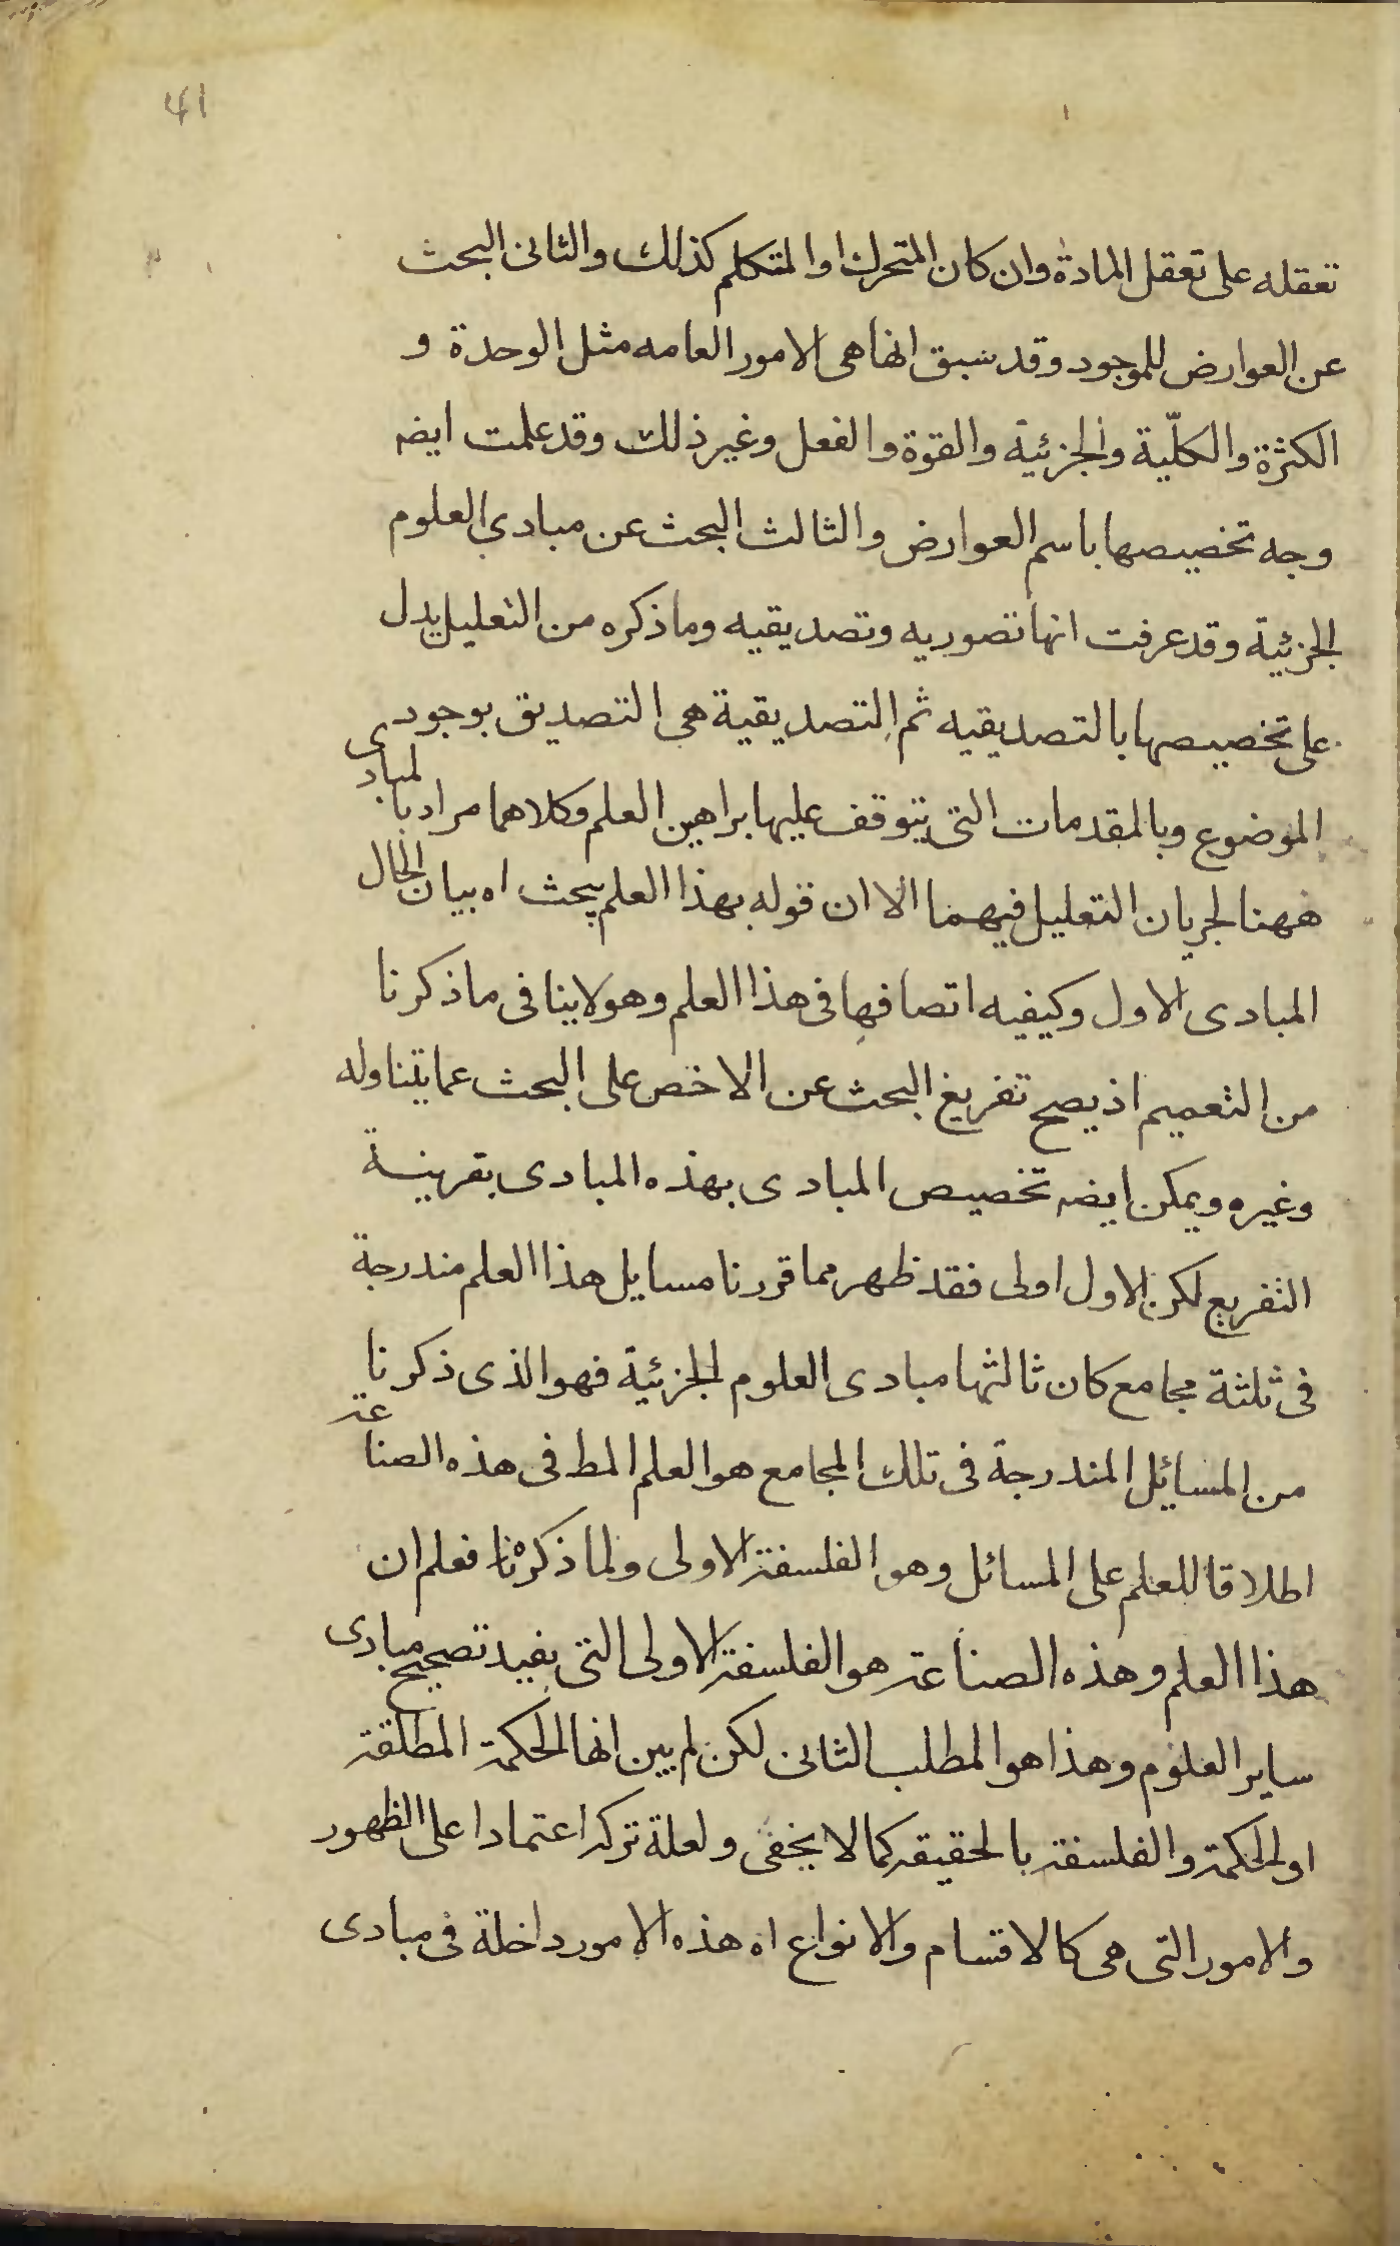 41
تعقله على تعقل المادة وان كان المتحرك او المتكلم كذلك والثانى البحث
عن العوارض للموجود وقد سبق انها هى الامور العامه مثل الوحدة و
الكثرة والكلّية والجزئية والقوة والفعل وغير ذلك وقد علمت ايضه
وجه تخصيصها باسم العوارض والثالث البحث عن مبادي العلوم
الجزئية وقد عرفت انها تصوريه وتصديقيه وما ذكره من التعليل يدل
على تخصيصها بالتصديقيه ثم التصديقية هى التصديق بوجود
الموضوع وبالمقدمات التى يتوقف عليها براهين العلم وكلاهما مراد بالمبادى
ههنا لجريان التعليل فيهما الا ان قوله بهذا العلم يبحث اه بيان لحال
المبادى الاول وكيفيه اتصافها فى هذا العلم وهو لاينافى ما ذكرنا
من التعميم اذ يصح تفريغ البحث عن الاخص على البحث عما يتناوله
وغيره ويمكن ايضه تخصيص المبادى بهذه المبادى بقرينة
التفريع لكن الاول اولى فقد ظهر مما قررنا مسايل هذا العلم مندرجة
فى ثلثة مجامع كان ثالثها مبادى العلوم الجزئية فهو الذى ذكرنا
من المسائل المندرجة فى تلك المجامع هو العلم المط فى هذه الصناعة
اطلاقا للعلم على المسائل وهو الفلسفة الاولى ولما ذكرنا فعلم ان
هذا العلم وهذه الصناعة هو الفلسفة الاولى التى يفيد تصحيح مبادى
ساير العلوم وهذا هو المطلب الثانى لكن لم يبن انها الحكمة المطلقة
اولى الحكمة والفلسفة بالحقيقه كما لا يخفى ولعلة تركه اعتمادا على الظهور
والامور التى هى كالاقسام والانواع اه هذه الامور داخلة فى مبادى